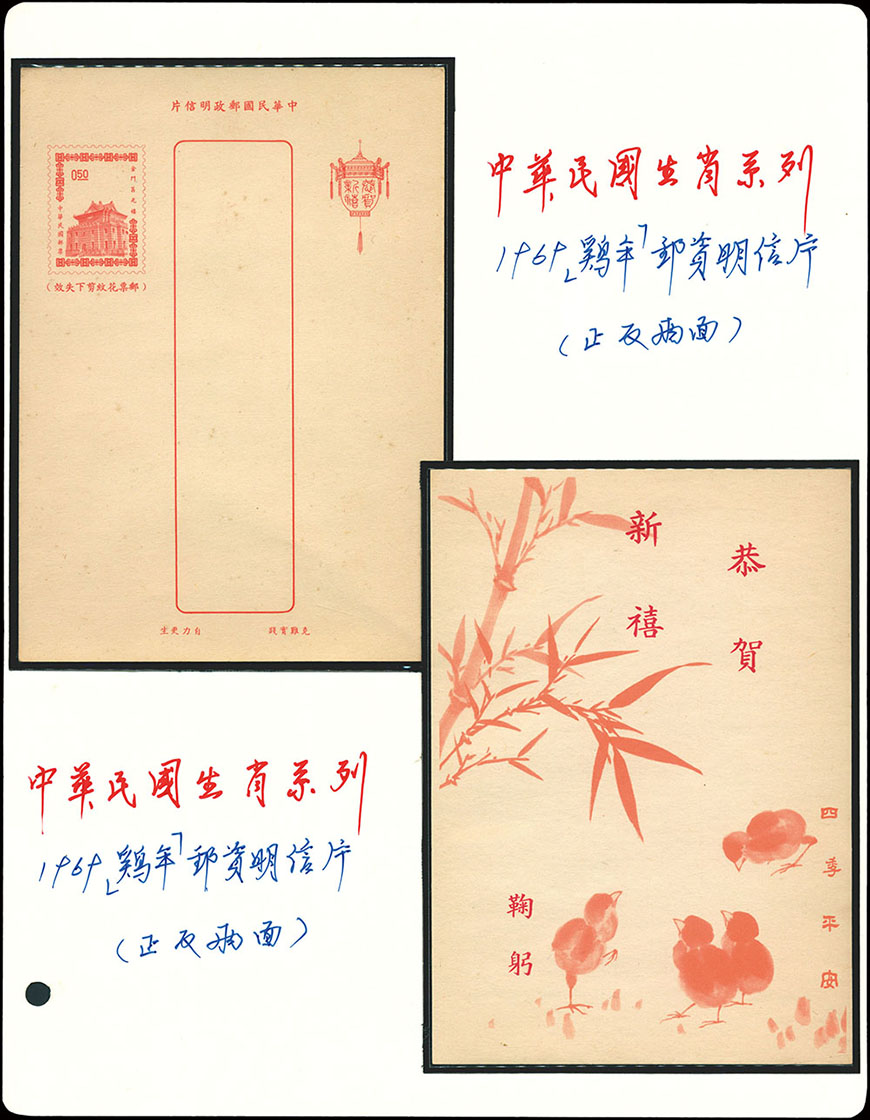 中華民國郵政明信片
050
金門莒光樓
中華民國郵票
（郵票花紋剪下失效）
恭賀
新禧
克難實踐
自力更生
中華民國生肖系列
1969「鷄年」郵資明信片
（正反兩面）
恭賀
新禧
四季平安
鞠躬
中華民國生肖系列
1969「鷄年」郵資明信片
（正反兩面）